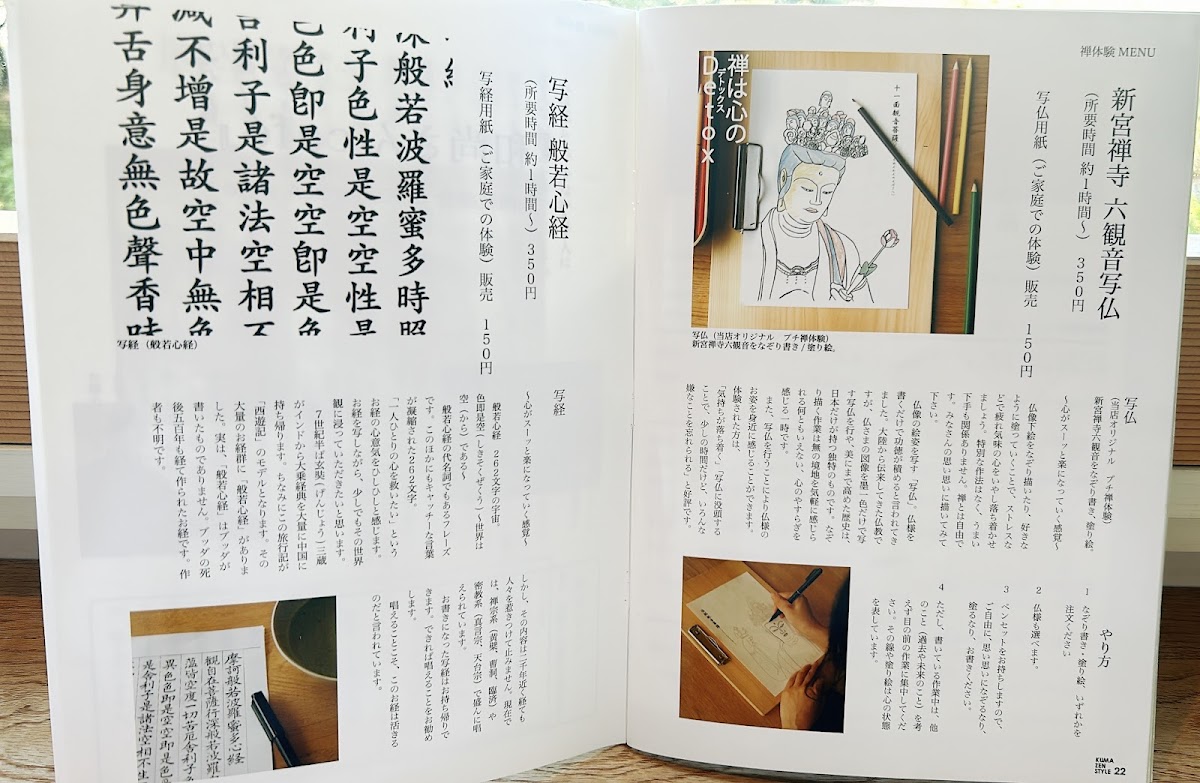 禅体験 MENU
新宮禅寺 六観音写仏
（所要時間 約1時間～） 350円
写仏用紙（ご家庭での体験）販売 150円
禅は心の
デトックス
Detox
十一面観音菩薩
写仏（当店オリジナル プチ禅体験）
新宮禅寺六観音をなぞり書き/塗り絵。
写仏
（当店オリジナル プチ禅体験）
新宮禅寺六観音をなぞり書き、塗り絵。
～心がスーッと楽になっていく感覚～
仏像下絵をなぞり描いたり、好きな
ように塗っていくことで、ストレスな
どで疲れ気味の心をいやし落ち着かせ
ましょう。特別な作法はなく、うまい
下手も関係ありません。禅とは自由で
す。みなさんの思い思いに描いてみて
下さい。
仏像の絵姿を写す「写仏」。仏様を
書くだけで功徳が積めると言われてき
ました。大陸から伝来してきた仏教で
すが、仏さまの図像を墨一色だけで写
す写仏を行や、美にまで高めた歴史は、
日本だけが持つ独特のものです。なぞ
り描く作業は無の境地を気軽に感じら
れる何ともいえない、心のやすらぎを
感じる一時です。
また、写仏を行うことにより仏様の
お姿を身近に感じることができます。
体験された方は、
「気持ちが落ち着く」「写仏に没頭する
ことで、少しの時間だけど、いろんな
嫌なことを忘れられる」と好評です。
やり方
1 なぞり書き・塗り絵、いずれかを
注文ください
2 仏様も選べます。
3 ペンセットをお持ちしますので、
ご自由に、思い思いになぞるなり、
塗るなり、お書きください。
4 ただし、書いている作業中は、他
のこと（過去や未来のこと）を考
えず目の前の作業に集中してくだ
さい。その線や塗り絵は心の状態
を表しています。
KUMA
ZEN
STYLE 22
写経 般若心経
（所要時間 約1時間～） 350円
写経用紙（ご家庭での体験）販売 150円
深般若波羅蜜多時照
利子色性是空空性是
色色卽是空空卽是色
舌利子是諸法空相不
減不增是故空中無色
舌身意無色聲香味
写経（般若心経）
写経
～心がスーッと楽になっていく感覚～
般若心経 262文字の宇宙。
色即是空（しきそくぜくう）～世界は
空（から）である～
般若心経の代名詞でもあるフレーズ
です。このほかにもキャッチーな言葉
が凝縮された262文字。
「一人ひとりの心を救いたい」という
お経の心意気をひしひしと感じます。
お経を写しながら、少しでもその世界
観に浸っていただきたいと思います。
7世紀半ば玄奘（げんじょう）三蔵
がインドから大乗経典を大量に中国に
持ち帰ります。ちなみにこの旅行記が
「西遊記」のモデルとなります。その
大量のお経群に「般若心経」がありま
した。実は、「般若心経」はブッダが
書いたものでありません。ブッダの死
後五百年も経て作られたお経です。作
者も不明です。
しかし、その内容は二千年近く経ても
人々を惹きつけて止みません。現在で
は、禅宗系（黄檗、曹洞、臨済）や
密教系（真言宗、天台宗）で盛んに唱
えられています。
お書きになった写経はお持ち帰りで
きます。できれば唱えることをお勧め
します。
唱えることこそ、このお経は活きる
のだと言われています。
摩訶般若波羅蜜多心経
観自在菩薩行深般若波羅
蘊皆空度一切苦厄舎利子
異色色即是空空即是色
是舎利子是諸法空相不生